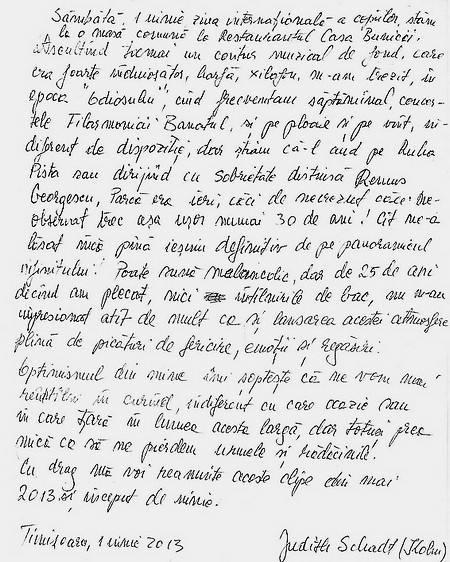 Sâmbătă, 1 iunie ziua internațională a copiilor, stăm
la o masă comună la Restaurantul Casa Bunicii.
Ascultînd un muzical de fond, care
era foarte înduioșător, harfă, xilofon, m-am trezit, în
epoca "odiosului", cînd frecventam săptămînal, concer-
tele Filarmonicii Banatul, și pe ploaie și pe vînt, in-
diferent de dispoziție, dar știam că-l aud pe
Pista sau dirijînd cu sobrietate distinsă Remus
Georgescu, Parcă era ieri, căci de necrezut
observat trec așa ușor numai 30 de ani! Cît ne-a
lăsat pînă ieșim definitiv de pe panoramicul
infinitului! Poate sună melancolic, dar de 25 de ani
decînd am plecat, nici întîlnirile de bac, nu m-au
impresionat atît de mult ca și lansarea acestei atmosfere
plină de picături de fericire, emoții și regăsiri.
Optimismul din mine îmi șoptește că ne vom mai
reîntîlni în curînd, indiferent cu care ocazie sau
în care țară în lumea asta largă, dar totuși prea
mică ca să ne pierdem urmele și rădăcinile.
Cu drag mă voi reaminti aceste clipe din mai
2013 și început de iunie.
Timișoara, 1 iunie 2013 Judith Schadt (Kolm)